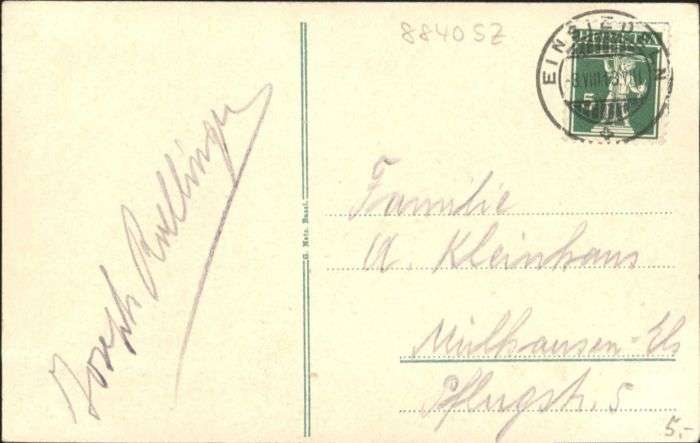 8840 SZ
EINSIEDELN
HELVETIA
5
Joseph
G. Metz, Basel.
Familie
A. Kleinhans
Mülhausen-Els
Pflugstr. 5
5.-